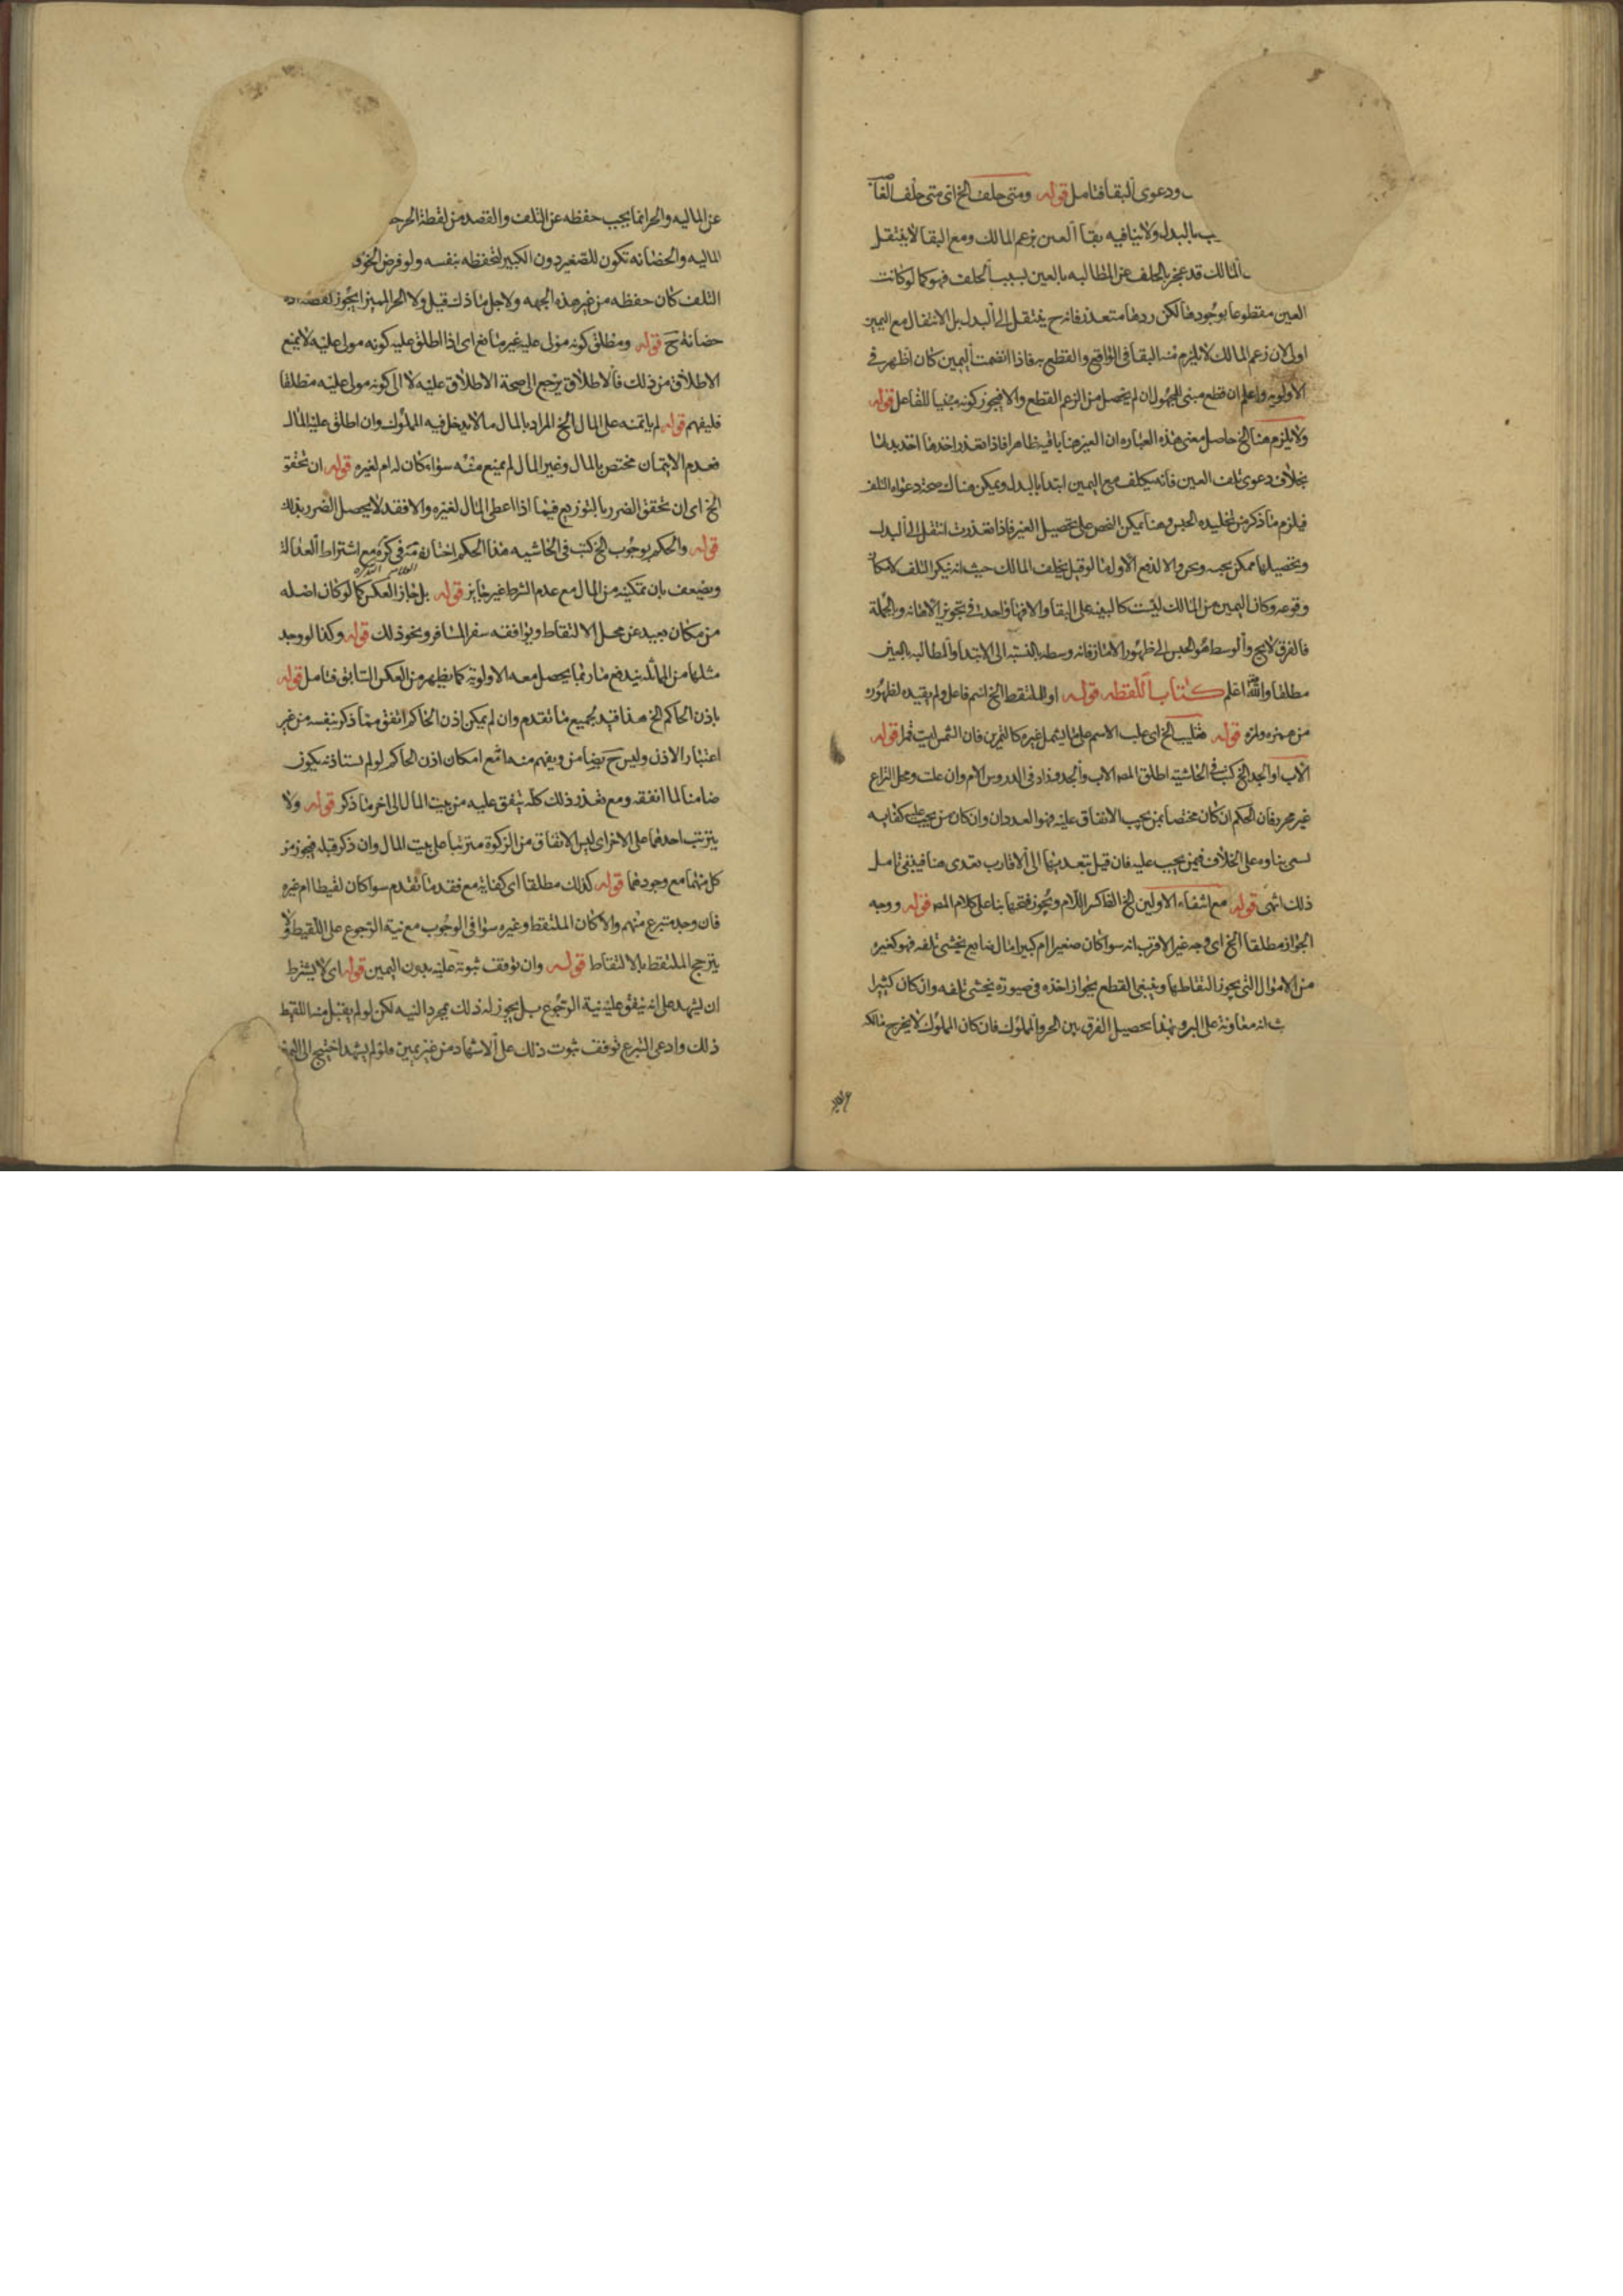 ودعوى البقا فتامل قوله ومتى حلف الخ اى متى حلف الغا
بالبدل ولا ينافيه بقا العين بزعم المالك ومع البقا لا ينتقل
المالك قد عجز بالحلف عن المطالبه بالعين بسبب الحلف فهو كما لو كانت
العين مقطوعا بوجودها لكن ردها متعذر فانه ح ينتقل الى البدل بل الانتقال مع اليمين
اولى لان زعم المالك لا يلزم منه البقا فى الواقع والقطع به فاذا انضمت اليمين كان اظهر فى
الاولويه واعلم ان قطع مبنى للمجهول ان لم يحصل من الزعم القطع والا فيجوز كونه مبنيا للفاعل قوله
ولا يلزم هنا الخ حاصل معنى هذه العباره ان العين هنا باقيه ظاهرا فاذا تعذر اخذها اخذ بدلها
بخلاف دعوى تلف العين فانه يكلف مع اليمين ابتدا بالبدل ويمكن هناك صحة دعواه التلف
فيلزم ما ذكر من تخليده الحبس وهنا يمكن الفحص على تحصيل العين فاذا تعذرت انتقل الى البدل
وتحصيلها ممكن بحبسه ونحوه والا لدفع الاول فما لو قيل بحلف المالك حيث انه ينكر التلف لامكان
وقوعه وكان اليمين من المالك ليست كالبينه على البقا والا فهما واحدة فى تجويز الاهانه وبالجملة
فالفرق لا يح والوسط هو الحبس الى ظهور الامارة فانه وسط بالنسبة الى الابتدا والمطالبه بالعين
مطلقا والله اعلم كتاب اللقطه قوله او للملتقط الخ اسم فاعل ولم يقيده لظهوره
من همزه ولمزه قوله تغليب الخ اى غلب الاسم على ما يشمل غيره كالقمرين فان الشمس ليت قمرا قوله
الاب او الجد الخ كتب فى الحاشيه اطلق المصـ الاب والجد وزاد فى الدروس الام وان علت ومحل النزاع
غير محرر فان الحكم ان كان مختصا بمن يجب الانفاق عليه فهو العددان وان كان من يجب على كفايه
لسى بناوه على الخلاف فيمن يجب عليه فان قيل بتعديتها الى الاقارب تعدى هنا فينبغى تامل
ذلك انتهى قوله مع انتفاء الاولين الخ الفاكسر اللام ويجوز فتحها بنا على كلام المصـ قوله ووجه
الجواز مطلقا الخ اى وجه غير الاقرب انه سوا كان صغيرا ام كبيرا مال ضايع يخشى تلفه فهو كغيره
من الاموال التى يجوز التقاطها وينبغى القطع بجواز اخذه فى صورة يخشى تلفه وان كان كبيرا
انه معاونة على البر وبهذا يحصل الفرق بين الحر والمملوك فان كان المملوك لا يخرج بذلك
عن الماليه والحر انما يجب حفظه عن التلف والقصد من لقطة الحر
الماليه والحضانه تكون للصغير دون الكبير لتحفظه بنفسه ولو فرض الخوف
التلف كان حفظه من غير هذه الجهه ولاجل ما ذكر قيل ولا الحر المميز اى يجوز لقطته
حضانة ح قوله ومطلق كونه مولى عليه غير مانع اى اذا اطلق عليه كونه مولى عليه لا يمنع
الاطلاق من ذلك فالاطلاق يرجع الى صحة الاطلاق عليه لا الى كونه مولى عليه مطلقا
فليفهم قوله لم ياتمنه على المال الخ المراد بالمال ما لا يدخل فيه المملوك وان اطلق عليه المال
فعدم الايتمان مختص بالمال وغير المال لم يمنع منه سواء كان له ام لغيره قوله ان تحقق
الخ اى ان تحقق الضرر بالتوزيع فيما اذا اعطى المال لغيره والا فقد لا يحصل الضرر بذلك
قوله والحكم بوجوب الخ كتب فى الحاشيه هذا الحكم اختاره فى كره مع اشتراط العدالة
ويضعف بان تمكينه من المال مع عدم الشرط غير جايز قوله بل جاز العكس كما لو كان اصله
من مكان بعيد عن محل الالتقاط ويوافقه سفر المسافر ونحو ذلك قوله وكذا لو وجد
مثلها من المماثله يندفع ما ربما يحصل معه الاولوية كما يظهر من العكس السابق فتامل قوله
باذن الحاكم الخ هذا قيد لجميع ما تقدم وان لم يمكن اذن الحاكم انفق مما ذكر بنفسه من غير
اعتبار الاذن وليس ح بضامن ويفهم منه انه مع امكان اذن الحاكم لو لم يستاذنه يكون
ضامنا لما انفقه ومع تعذر ذلك كله ينفق عليه من بيت المال الى اخر ما ذكر قوله ولا
يترتب احدهما على الاخر اى ليس الانفاق من الزكوة مترتبا على بيت المال وان ذكر قبله فيجوز من
كل منهما مع وجودهما قوله كذلك مطلقا اى كفاية مع فقد ما تقدم سوا كان لقيطا ام غيره
فان وجد متبرع منهم والا كان الملتقط وغيره سوا فى الوجوب مع نية الرجوع على اللقيط ولا
يترجح الملتقط بالالتقاط قوله وان توقف ثبوته عليه بدون اليمين قوله اى لا يشترط
ان يشهد على انه ينفق عليه نية الرجوع بل يجوز له ذلك بمجرد النيه لكن لو لم يقبل منه اللقيط
ذلك وادعى التبرع توقف ثبوت ذلك على الاشهاد من غير يمين ولو لم يشهد احتيج الى اليمين